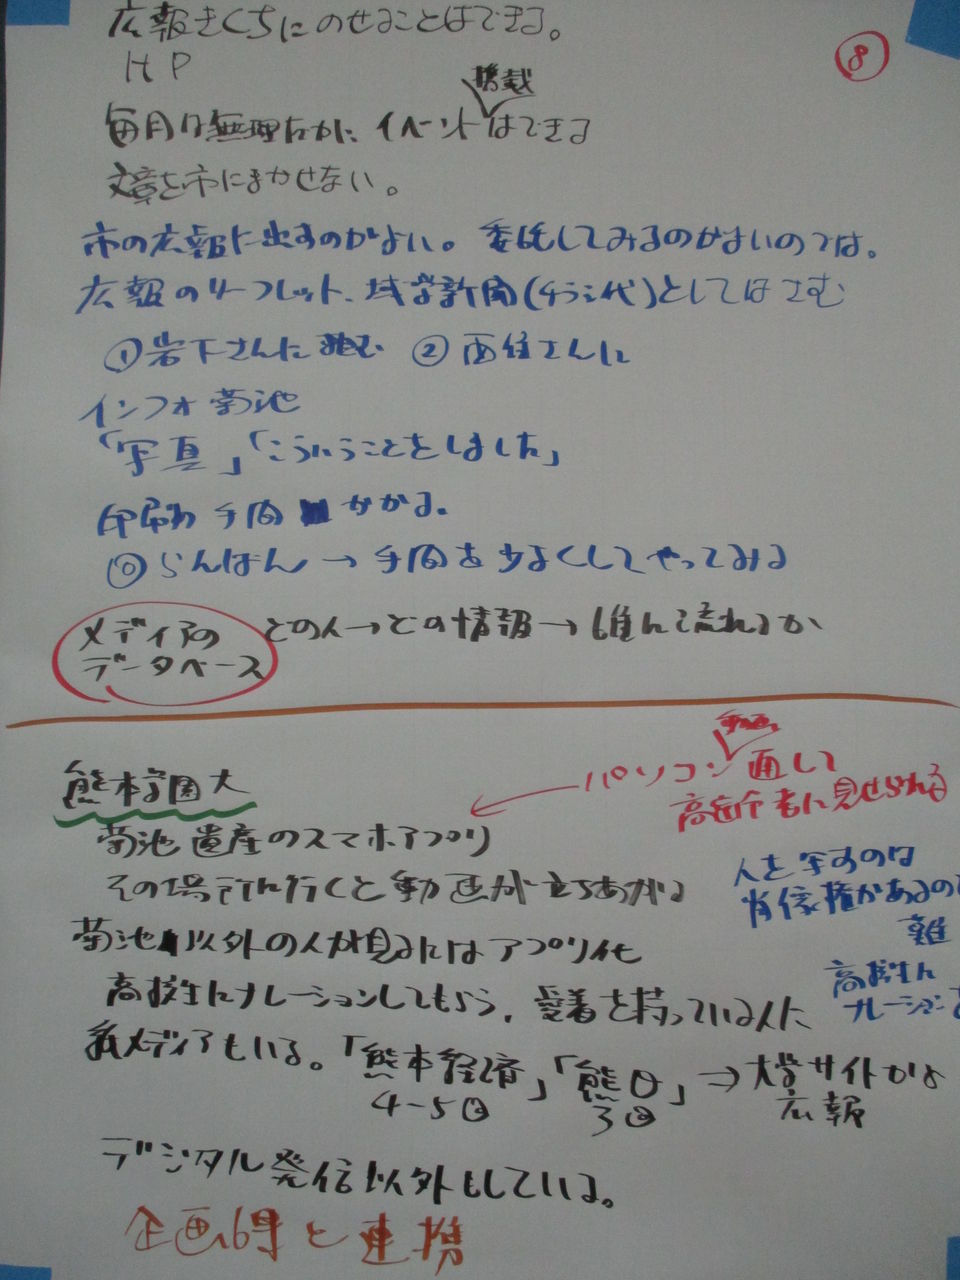 広報きくちにのせることはできる。
HP
⑧
掲載
毎月は無理だがイベントはできる
文章を市にまかせない。
市の広報に出すのがよい。委託してみるのがよいのでは。
広報のリーフレット、地学新聞(チラシ代)としてはさむ
①岩下さんに ②西住さんに
インフォ菊池
「写真」「こういうことをしました」
印刷 手間 かかる。
⓪らんばん→手間を少なくしてやってみる
メディアの
データベース
どの人→どの情報→誰に流れるか
熊本学園大
動画
パソコン通して
高齢者に見せられる
菊池遺産のスマホアプリ
その場所に行くと動画が立ちあがる
人を写すのは
肖像権があるの
難
菊池以外の人が見るにはアプリ化
高校生にナレーションしてもらう、愛着を持っている人に
高校生に
ナレーションを
紙メディアもいる。「熊本経済」「熊日」⇒大学サイドから
4-5回
3回
広報
デジタル発信以外もしている。
企画課と連携